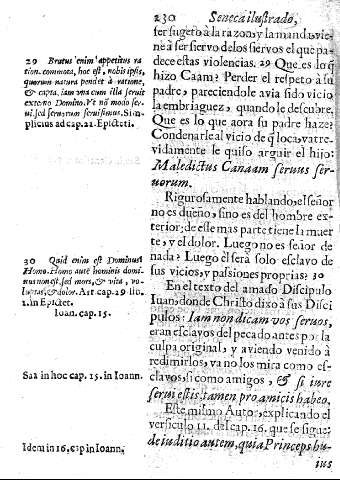 230 Seneca ilustrado,
ser sugeto à la razon, y la manda, vie-
ne à ser siervo de los siervos el que pa-
dece estas violencias. 29 Que es lo q̃
hizo Caám? Perder el respeto à su
padre, pareciendole avia sido vicio
la embriaguez, quando le descubre.
Que es lo que aora su padre haze?
Condenarle al vicio de q̃ loca, y atre-
vidamente le quiso arguir el hijo:
Maledictus Canaam seruus ser-
uorum.
Rigurosamente hablando, el señor
no es dueño, sino es del hombre ex-
terior; de esse mas parte tiene la muer
te, y el dolor. Luego no es señor de
nada? Luego èl serà solo esclavo de
sus vicios, y passiones proprias? 30
En el texto del amado Discipulo
Iuan, donde Christo dixo à sus Disci
pulos: Iam non dicam vos seruos,
eran esclavos del pecado antes por la
culpa original, y aviendo venido à
redimirlos, ya no los mira como es-
clavos, si como amigos, & si iure
serui estis, tamen pro amicis habeo.
Este mismo Autor, explicando el
versiculo 11. del cap. 16. que se sigue:
de iuditio autem, quia Princeps hu-
ius
29 Brutus enim appetitus ra
tion. commota, hoc est, nobis ipsis,
quorum natura pendet à ratione,
& capta, iam una cum illa seruit
externo Domino. Vt nõ modo ser-
ui, sed seruorum seruissimus. Sim-
plicius ad cap. 21. Epicteti.
30 Quid enim est Dominus
Homo. Homo aute hominis domi-
nus non est, sed mors, & vita, vo-
luptas, & dolor. Arr. cap. 29 lib.
1. in Epictet.
Ioan. cap. 15.
Saa in hoc cap. 15. in Ioann.
Idem in 16. cap in Ioann.